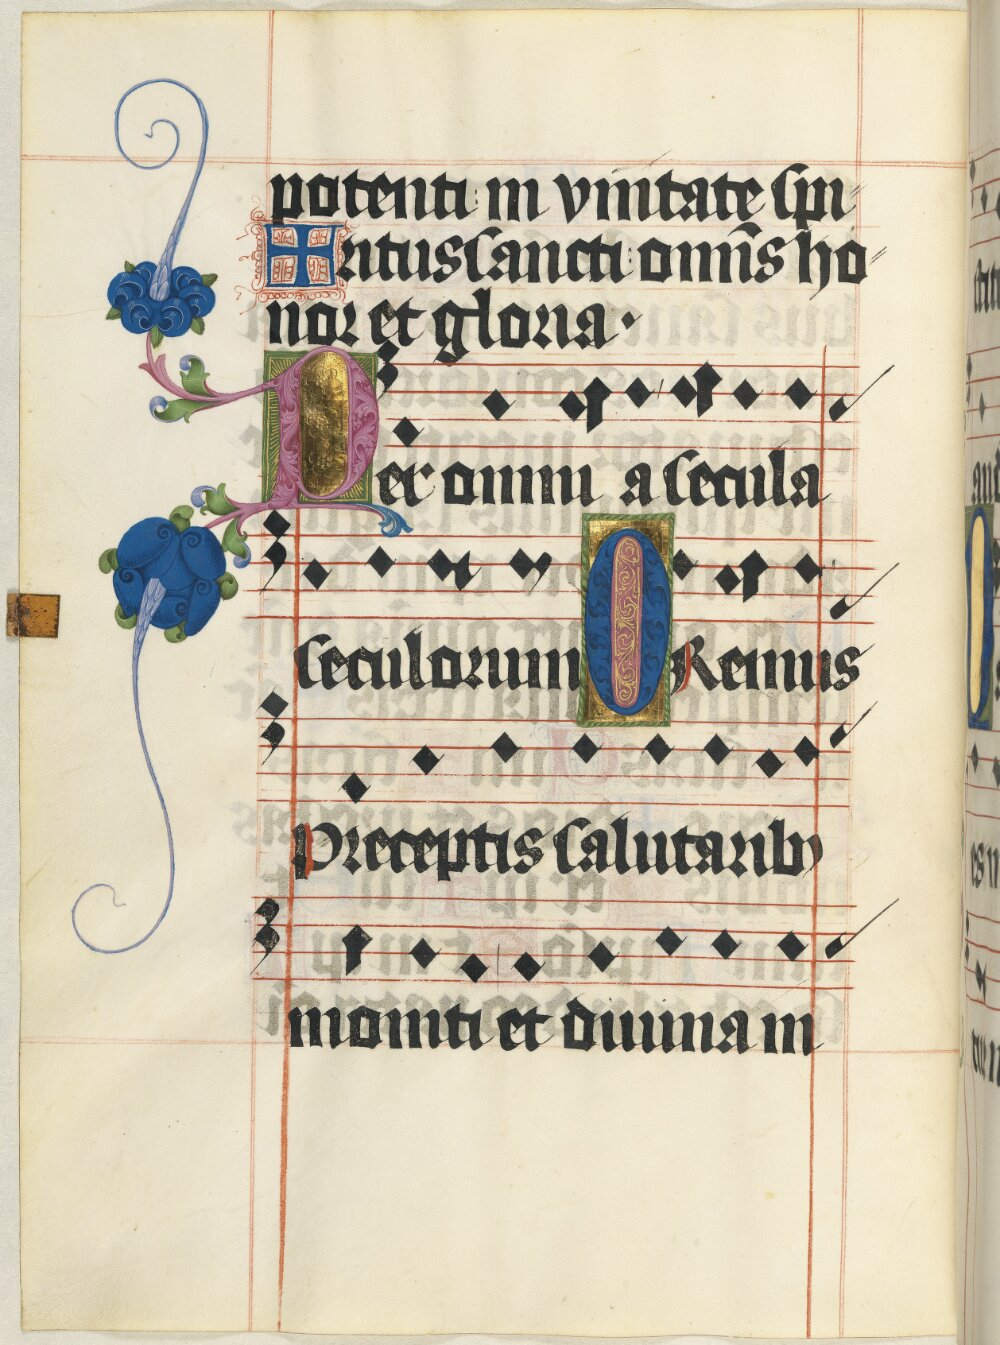 potenti in vnitate spi
ritus sancti omīs ho
nor et gloria·
Per omnia secula
seculorum ORemus
Preceptis salutarib9
moniti et diuina in